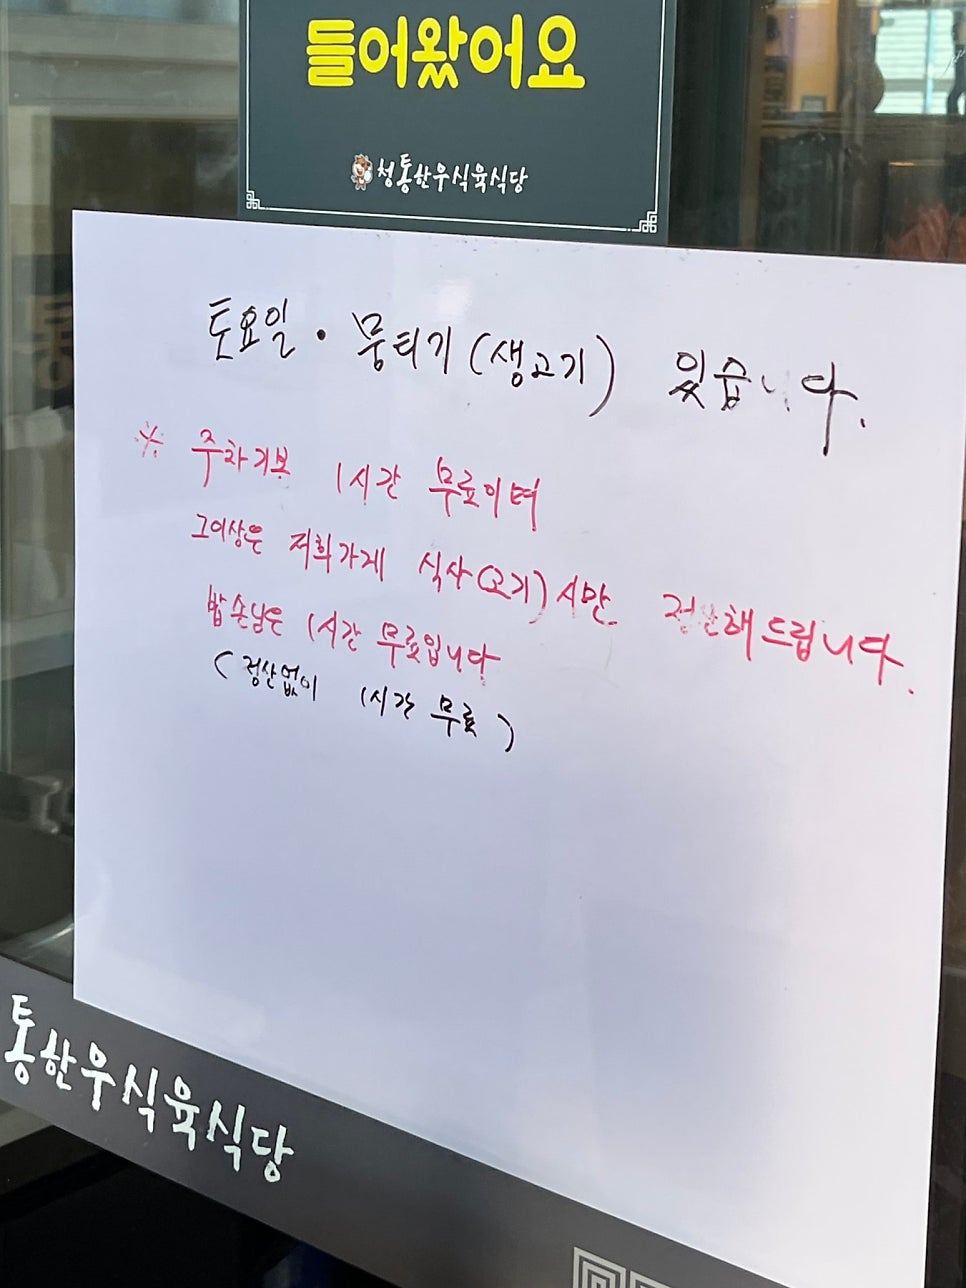 들어왔어요
청통한우식육식당
토요일 · 뭉티기 (생고기) 있습니다.
※ 주차기본 1시간 무료이며
그이상은 저희가게 식사(고기)시만 정산해드립니다.
밥손님은 1시간 무료입니다
(정산없이 1시간 무료)
통한우식육식당